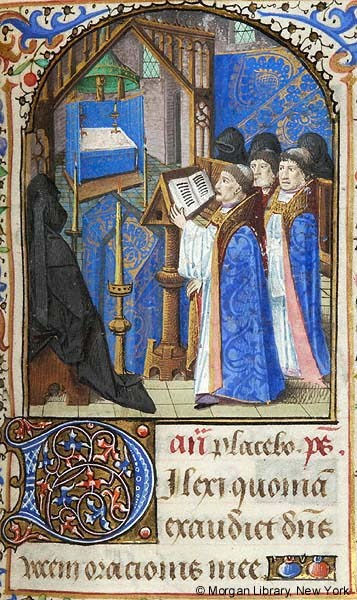 añ placebo. ps̃.
Dilexi quoniã
exaudiet dñs
vocem oracionis mee
© Morgan Library, New York